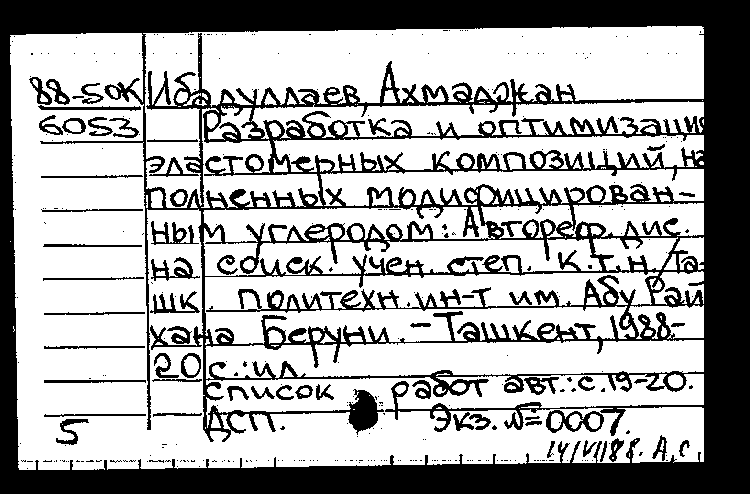 88-50К Ибадуллаев, Ахмаджан
6053 Разработка и оптимизация
эластомерных композиций, на
полненных модифицирован-
ным углеродом: Автореф. дис.
на соиск. учен. степ. к.т.н./Та-
шк. политехн. ин-т им. Абу Рай
хана Беруни. – Ташкент, 1988.-
20 с.: ил.
список работ авт.: с. 19-20.
ДСП. Экз. №=0007.
5
14/VII88. А.С.